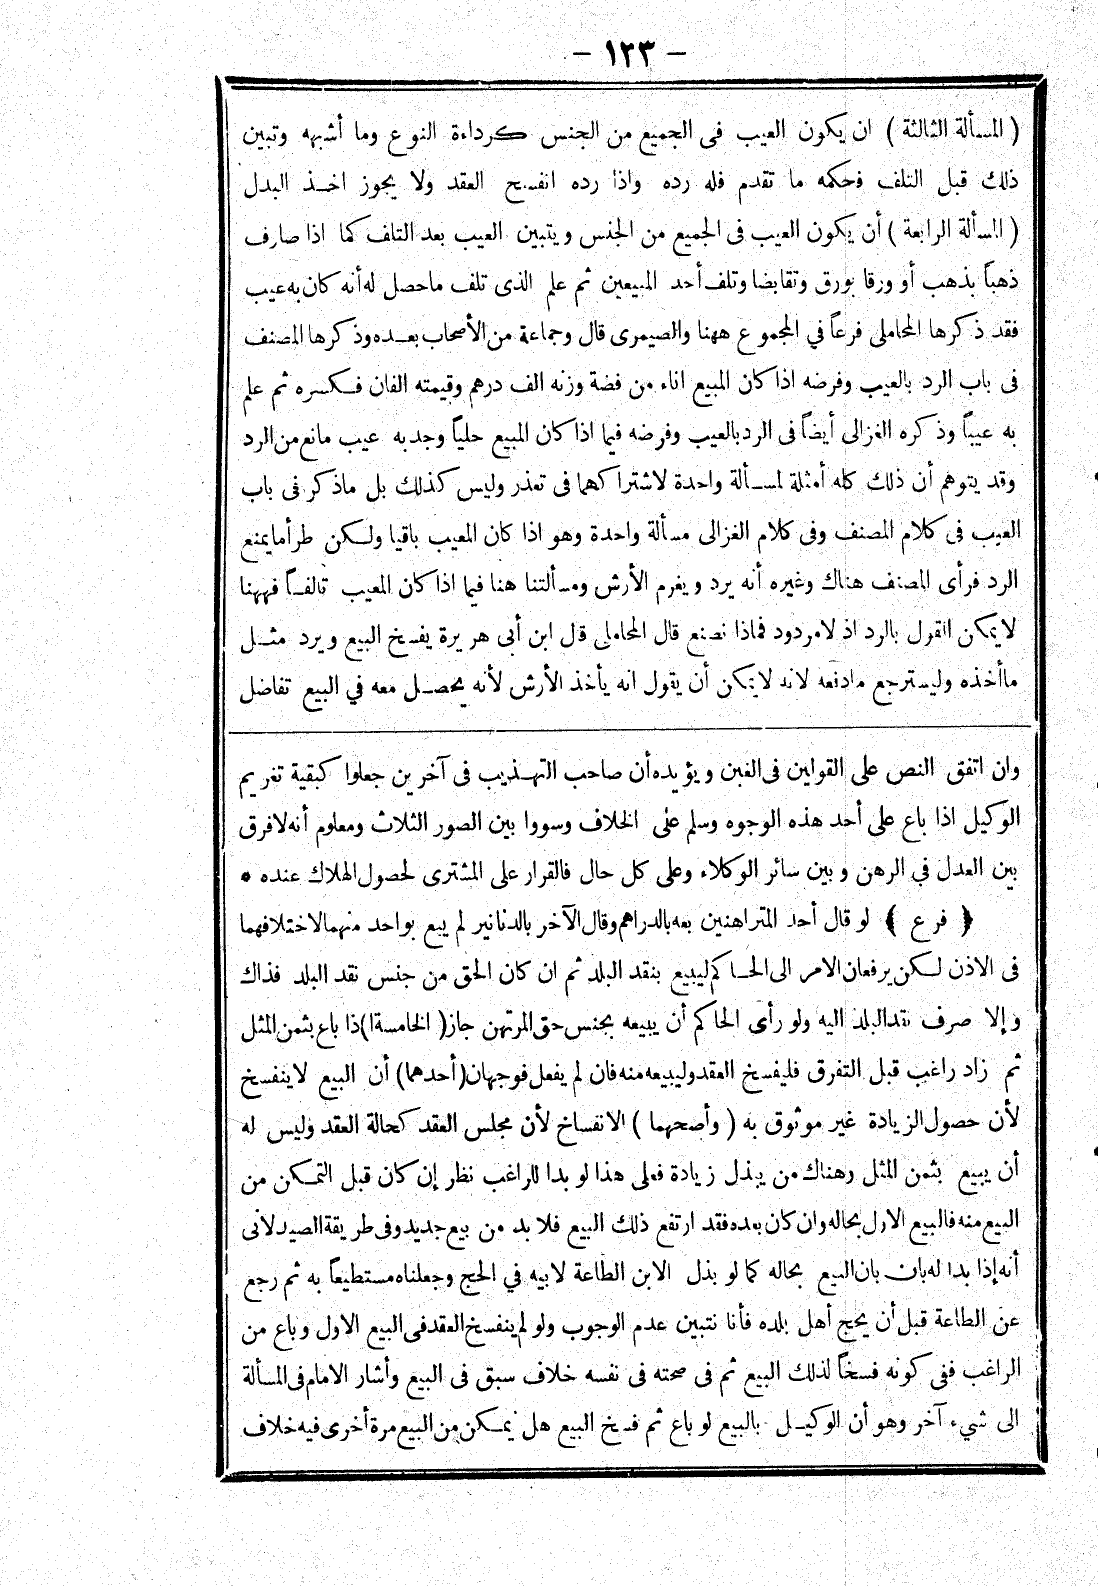 – ١٢٣ –
( المسألة الثالثة ) ان يكون العيب فى الجميع من الجنس كرداءة النوع وما أشبهه وتبين
ذلك قبل التلف فحكمه ما تقدم فله رده واذا رده انفسخ العقد ولا يجوز اخذ البدل
( المسألة الرابعة ) أن يكون العيب فى الجميع من الجنس ويتبين العيب بعد التلف كما اذا صارف
ذهباً بذهب أو ورقا بورق وتقابضا وتلف أحد المبيعين ثم علم الذى تلف ماحصل له أنه كان به عيب
فقد ذكرها المحاملى فرعاً في المجموع ههنا والصيمرى قال وجماعة من الأصحاب بعده وذكرها المصنف
فى باب الرد بالعيب وفرضه اذا كان المبيع اناء من فضة وزنه الف درهم وقيمته الفان فكسره ثم علم
به عيباً وذكره الغزالى أيضاً فى الرد بالعيب وفرضه فيما اذا كان المبيع حلياً وجد به عيب مانع من الرد
وقد يتوهم أن ذلك كله أمثلة لمسألة واحدة لاشتراكهما فى تعذر وليس كذلك بل ماذكر فى باب
العيب فى كلام المصنف وفى كلام الغزالى مسألة واحدة وهو اذا كان المعيب باقيا ولكن طرأ مايمنع
الرد فرأى المصنف هناك وغيره أنه يرد ويغرم الأرش ومسألتنا هنا فيما اذا كان المعيب تالفاً فههنا
لا يمكن القول بالرد اذ لامردود فماذا نصنع قال المحاملى قل ابن أبى هريرة يفسخ البيع ويرد مثل
ماأخذه وليسترجع مادفعه لانه لا يمكن أن يقول انه يأخذ الأرش لأنه يحصل معه في البيع تفاضل
وان اتفق النص على القولين فى الغبن ويؤيده أن صاحب التهذيب فى آخرين جعلوا كبقية تغريم
الوكيل اذا باع على أحد هذه الوجوه وسلم على الخلاف وسووا بين الصور الثلاث ومعلوم أنه لافرق
بين العدل في الرهن وبين سائر الوكلاء وعلى كل حال فالقرار على المشترى لحصول الهلاك عنده *
﴿ فرع ﴾ لو قال أحد المتراهنين بعه بالدراهم وقال الآخر بالدنانير لم يبع بواحد منهما لاختلافهما
فى الاذن لكن يرفعان الامر الى الحاكم ليبيع بنقد البلد ثم ان كان الحق من جنس نقد البلد فذاك
وإلا صرف نقد البلد اليه ولو رأى الحاكم أن يبيعه بجنس حق المرتهن جاز( الخامسة )ذا باع بثمن المثل
ثم زاد راغب قبل التفرق فليفسخ العقد وليبيعه منه فان لم يفعل فوجهان (أحدهما) أن البيع لا ينفسخ
لأن حصول الزيادة غير موثوق به ( وأصحهما ) الانفساخ لأن مجلس العقد كحالة العقد وليس له
أن يبيع بثمن المثل وهناك من يبذل زيادة فعلى هذا لو بدا للراغب نظر إن كان قبل التمكن من
البيع منه فالبيع الاول بحاله وان كان بعده فقد ارتفع ذلك البيع فلا بد من بيع جديد وفى طريقة الصيدلانى
أنه إذا بدا له بان بان البيع بحاله كما لو بذل الابن الطاعة لابيه في الحج وجعلناه مستطيعاً به ثم رجع
عن الطاعة قبل أن يحج أهل بلده فأنا نتبين عدم الوجوب ولو لم ينفسخ العقد فى البيع الاول وباع من
الراغب ففى كونه فسخاً لذلك البيع ثم فى صحته فى نفسه خلاف سبق فى البيع وأشار الامام فى المسألة
الى شيء آخر وهو أن الوكيل بالبيع لو باع ثم فسخ البيع هل يمكن من البيع مرة أخرى فيه خلاف